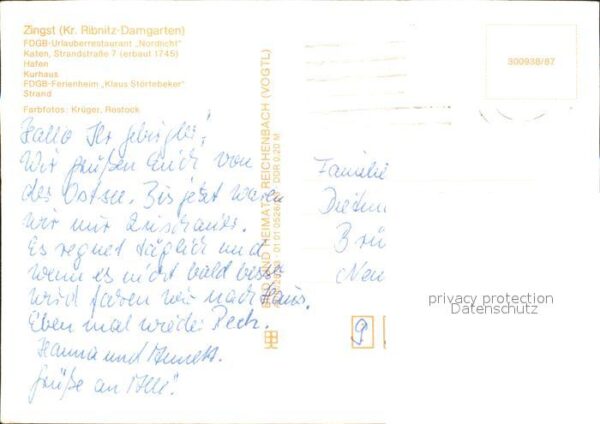 Zingst (Kr. Ribnitz-Damgarten)
FDGB-Urlauberrestaurant „Nordlicht"
Katen, Strandstraße 7 (erbaut 1745)
Hafen
Kurhaus
FDGB-Ferienheim „Klaus Störtebeker"
Strand
Farbfotos: Krüger, Rostock
Hallo Ihr
Wir grüßen Euch von
der Ostsee. Bis jetzt waren
wir nur Zuschauer.
Es regnet täglich und
wenn es nicht bald besser
wird fahren wir nach Haus.
Eben mal wieder Pech.
Hanna und Annett.
Grüße an Alle!
BILD UND HEIMAT REICHENBACH (VOGTL)
DDR 0,20 M
300938/87
Familie
Dietm
Brü
Neu
9
privacy protection
Datenschutz